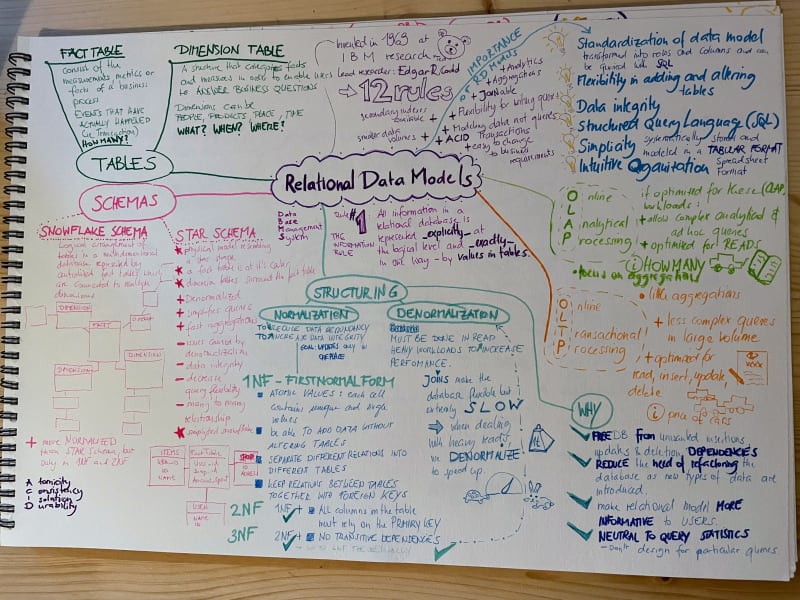 FACT TABLE
consist of the
measurements, metrics or
facts of a business
process
EVENTS THAT HAVE
ACTUALLY HAPPENED
(ie Transaction)
HOW MANY?
DIMENSION TABLE
A structure that categorizes facts
and measures in order to enable users
to ANSWER BUSINESS QUESTIONS
Dimensions can be
PEOPLE, PRODUCTS, PLACE, TIME
WHAT? WHEN? WHERE?
TABLES
Invented in 1969 at
IBM research
Lead researcher: Edgar R. Codd
12 rules
secondary indexes
available +
smaller data
volumes +
IMPORTANCE
OF RDMWHS
+ Analytics
+ Aggregations
+ JOINable
+ Flexibility for writing queries
+ Modeling data not queries
+ ACID Transactions
+ easy to change
to business
requirements
Standardization of data model
transformed into rows and columns and can
be queried with SQL
Flexibility in adding and altering
tables
Data integrity
Structured Query Language (SQL)
Simplicity systematically stored and
modeled in a TABULAR FORMAT
Intuitive Organization Spreadsheet
Format
Relational Data Models
Data
Base
Management
System
Rule #1
THE
INFORMATION
RULE
All information in a
relational database is
represented explicitly at
the logical level and exactly
in one way - by values in tables.
SCHEMAS
SNOWFLAKE SCHEMA
Logical arrangement of
tables in a multidimensional
database represented by
centralized fact tables which
are connected to multiple
dimensions
DIMENSION
FACT
DIMENSION
DIMENSION
+ more NORMALIZED
than STAR Schema, but
only in 1NF and 2NF
Atomicity
Consistency
Isolation
Durability
STAR SCHEMA
physical model resembling
a star shape
a fact table is at it's center
dimension tables surround the fact table
+ Denormalized
+ simplifies queries
+ fast aggregations
- issues caused by
denormalization
- data integrity
- decrease
query flexibility
- many to many
relationship
simplified snowflake
ITEMS
NAME
ID
Fact Table
SHOP
ID
USER
NAME
ID
STRUCTURING
NORMALIZATION
TO REDUCE DATA REDUNDANCY
TO INCREASE DATA INTEGRITY
GOAL: UPDATES only in
ONE PLACE
1NF - FIRST NORMAL FORM
ATOMIC VALUES: each cell
contains unique and single
values
be able TO ADD DATA WITHOUT
ALTERING TABLES
SEPARATE DIFFERENT RELATIONS INTO
DIFFERENT TABLES
KEEP RELATIONS BETWEEN TABLES
TOGETHER WITH FOREIGN KEYS
2NF
1NF +
ALL columns in the table
must rely on the PRIMARY KEY
3NF
2NF +
NO TRANSITIVE DEPENDENCES
DENORMALIZATION
MUST BE DONE IN READ
HEAVY WORKLOADS TO INCREASE
PERFOMANCE.
JOINS make the
database flexible but
extremely SLOW
when dealing
with heavy reads,
we DENORMALIZE
to speed up.
OnLine
Analytical
Processing
if optimized for these (OLAP)
workloads:
+ allow complex analytical &
ad hoc queries
+ optimized for READS
HOW MANY
• focus on aggregations
OnLine
Transactional
Processing
• little aggregations
+ less complex queries
in large volume
+ optimized for
read, insert, update,
delete
price of cars
WHY
FREE DB from unwanted insertions,
updates & deletion DEPENDENCES
REDUCE the need of refactoring the
database as new types of data are
introduced.
make relational model MORE
INFORMATIVE to USERS.
NEUTRAL TO QUERY STATISTICS
- Don't design for particular queries